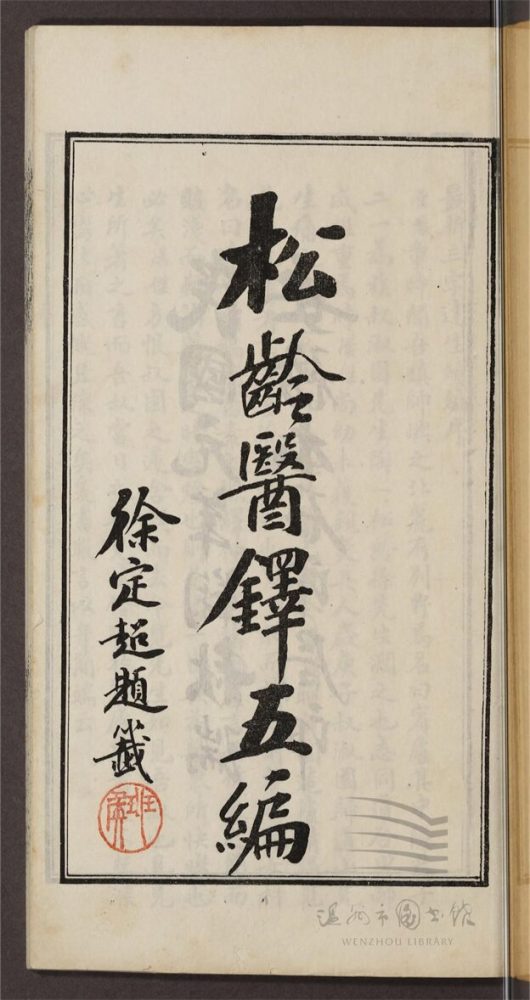 松齡醫鐸五編
徐定超題籤
溫州市图书馆
WENZHOU LIBRARY